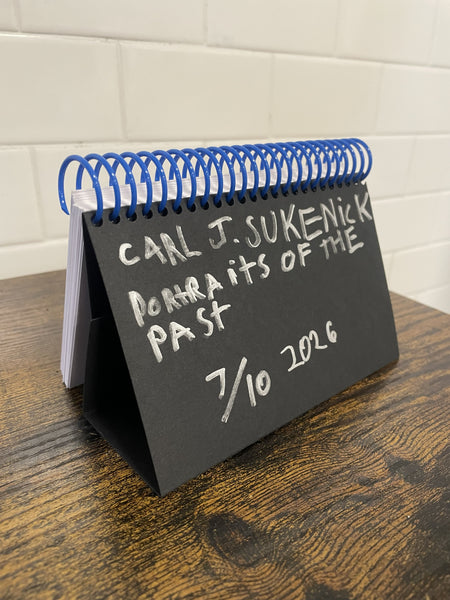 CARL J. SUKENicK
PORTRAitS OF tHE
PASt
7/10 2026